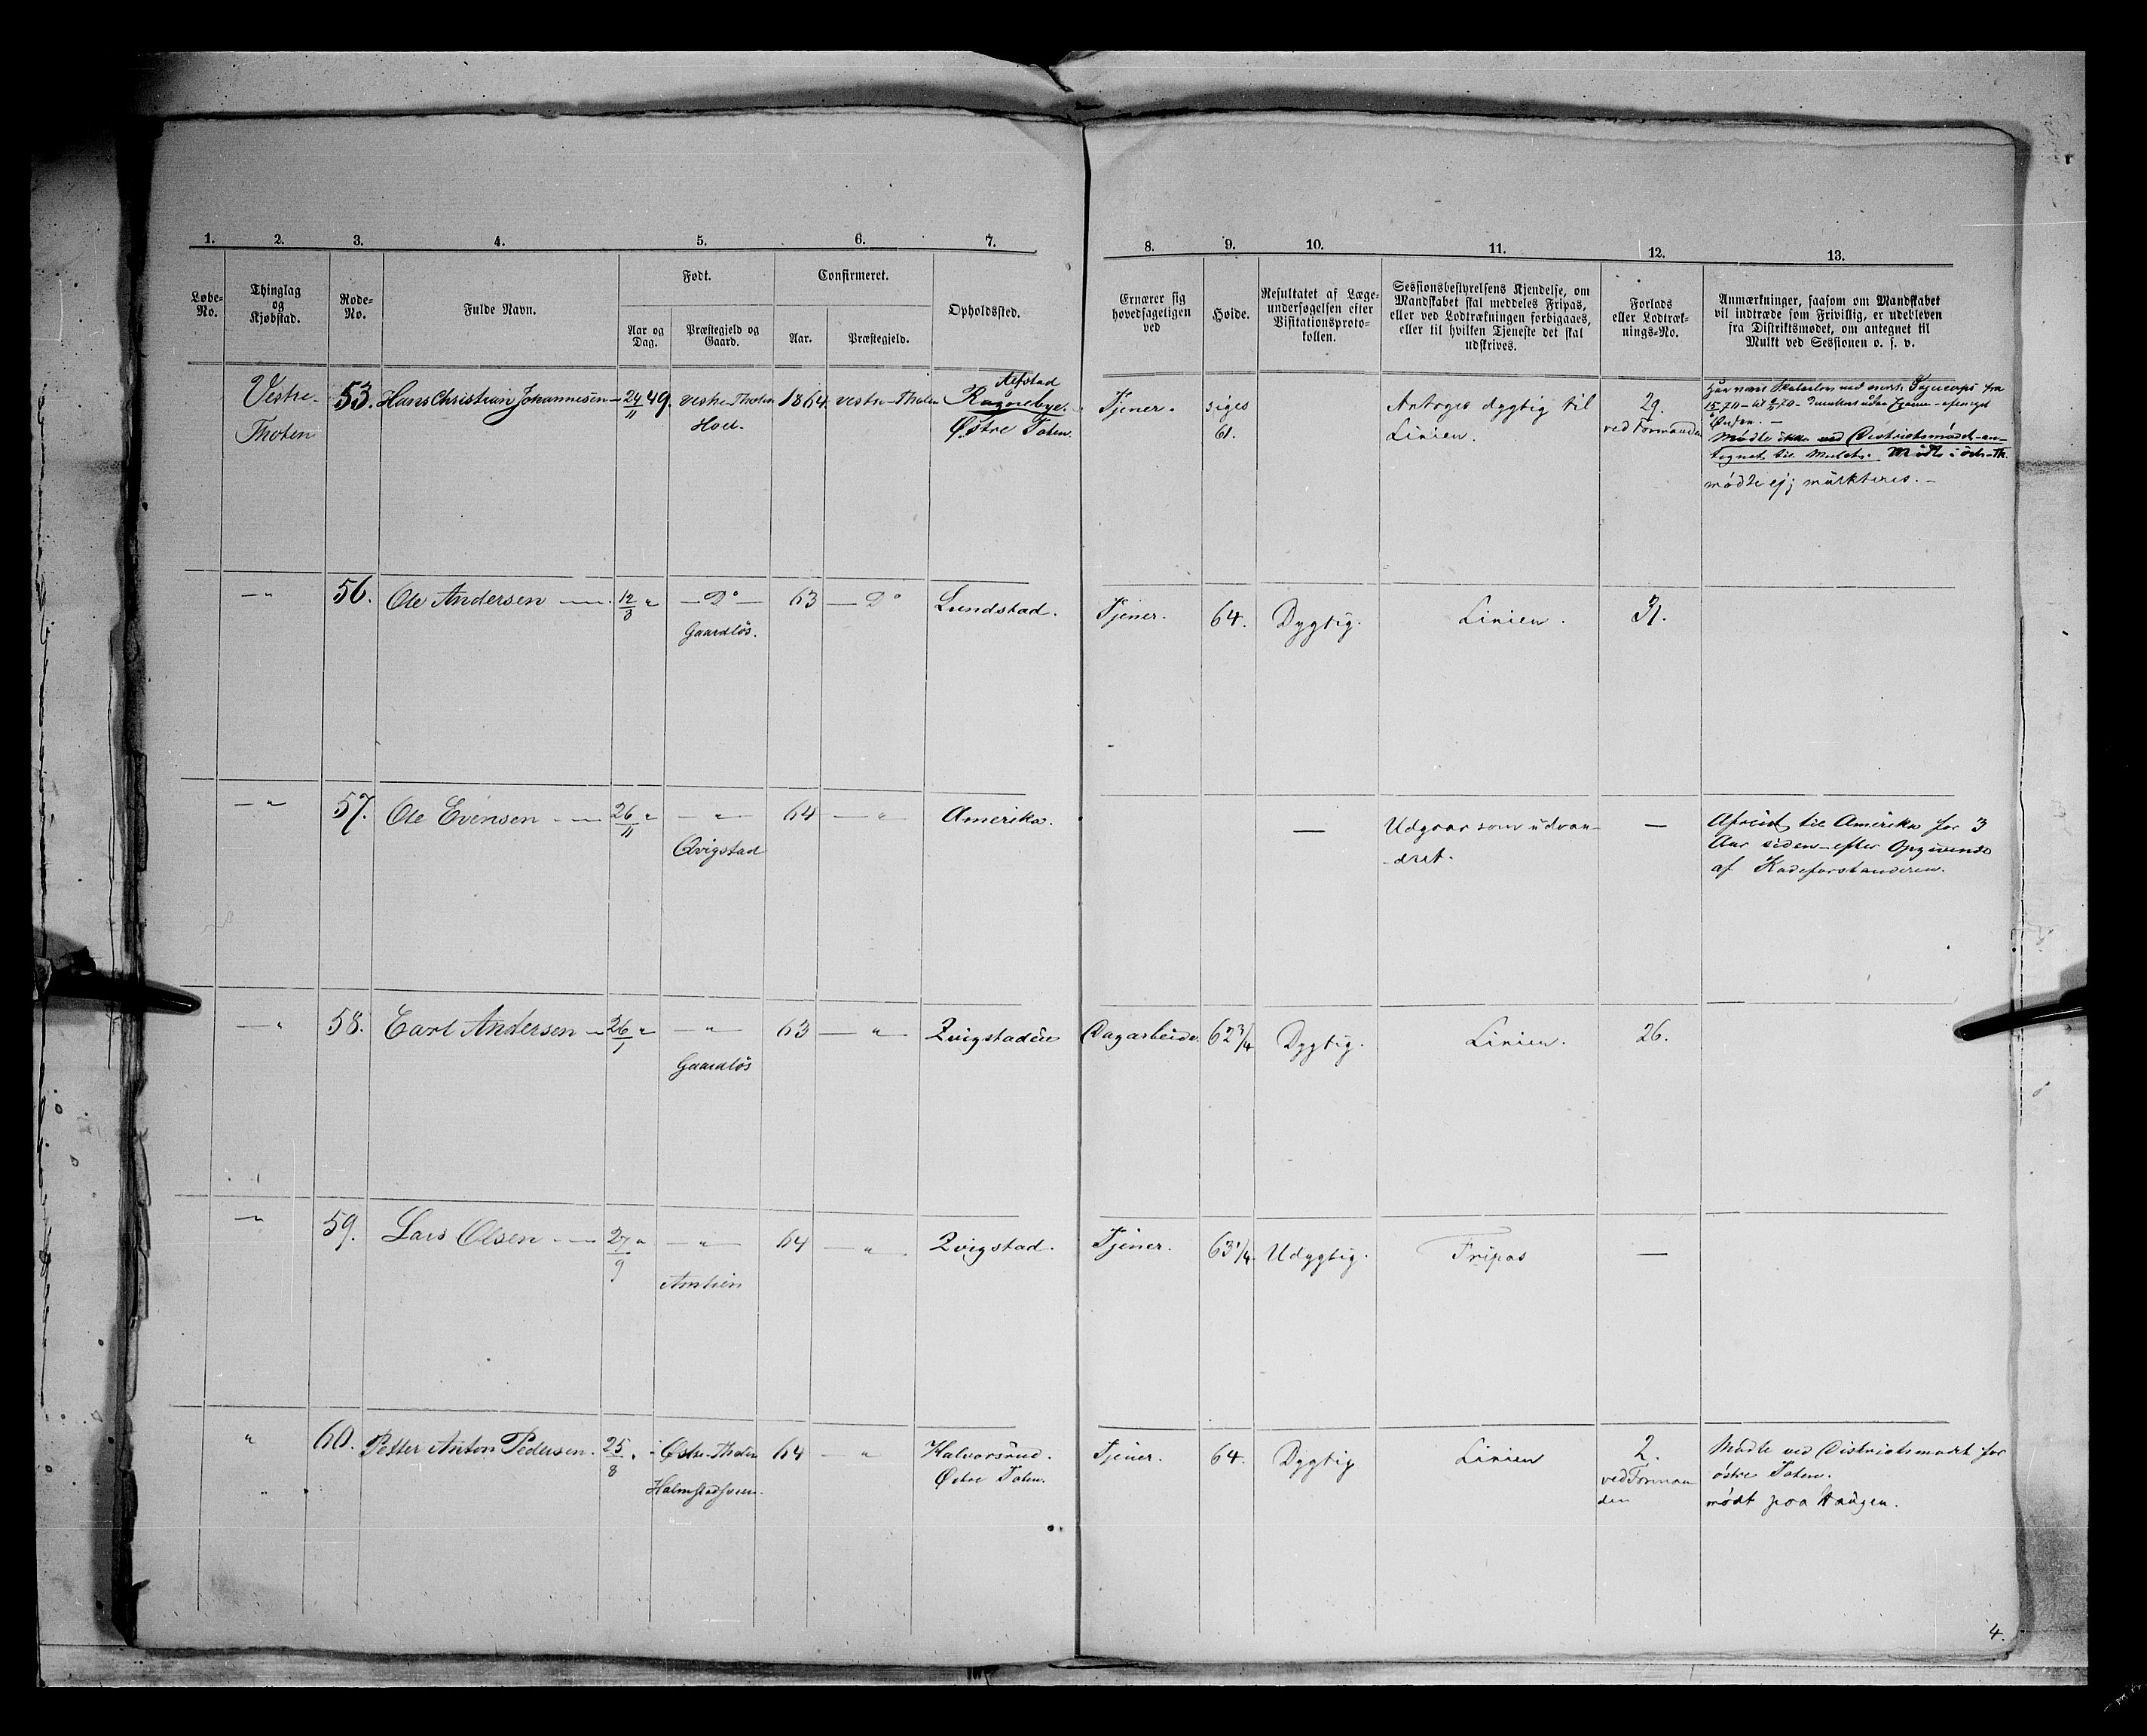 1. 2. 3. 4. 5. 6. 7. 8. 9. 10. 11. 12. 13.
Løbe-
No.
Thinglag
og
Kjøbstad.
Rode-
No.
Fulde Navn.
Født.
Aar og
Dag.
Præstegjeld og
Gaard.
Confirmeret.
Aar.
Præstegjeld.
Opholdssted.
Ernærer sig
hovedsageligen
ved
Høide.
Resultatet af Læge-
undersøgelsen efter
Visitationsproto-
kollen.
Sessionsbestyrelsens Kjendelse, om
Mandskabet skal meddeles Fripas,
eller ved Lodtrækningen forbigaaes,
eller til hvilken Tjeneste det skal
udskrives.
Forlods
eller Lodtræk-
nings-No.
Anmærkninger, saasom om Mandskabet
vil indtræde som Frivillig, er udebleven
fra Distriktsmødet, om antegnet til
Mulkt ved Sessionen o. s. v.
Vestre-
Thoten
53. Hans Christian Johannesen 24/11 49. Vestre-Thoten
Hoel.
1864 Vestre-Thoten
Alfstad
Ragnebye.
Østre Toten.
Tjener.
siges
61.
Antages dygtig til
Linien.
29.
ved Formanden
Mødte ikke ved Districtsmødet-an-
tegnet til Mulct. Mødte i
mødte ej; mulkteres. —
— " 56. Ole Andersen 12/8 " — D° —
Gaardløs.
63 — D° Lundstad. Tjener. 64. Dygtig. Linien. 31.
— " 57. Ole Evensen 26/11 " — " —
Qvigstad
64 — " — Amerika. —
Udgaar som udvan-
dret.
—
Afreist til Amerika for 3
Aar siden — efter Opgivende
af Rodeforstanderen.
— " 58. Carl Andersen 26/1 " — " —
Gaardløs
63 — " — Qvigstadeie Dagarbeide. 62 3/4 Dygtig. Linien. 26.
— " 59. Lars Olsen 27/9 " — " —
64 — " — Qvigstad. Tjener. 63 1/4 Udygtig. Fripas —
" 60. Petter Anton Pedersen. 25/8 " Østre-Thoten
64 — " Halvorsrud.
Østre Toten.
Tjener. 64. Dygtig Linien
2.
ved Forman
den
Mødte ved Districtsmødet for
østre Toten.
mødt paa Haugen.
4.